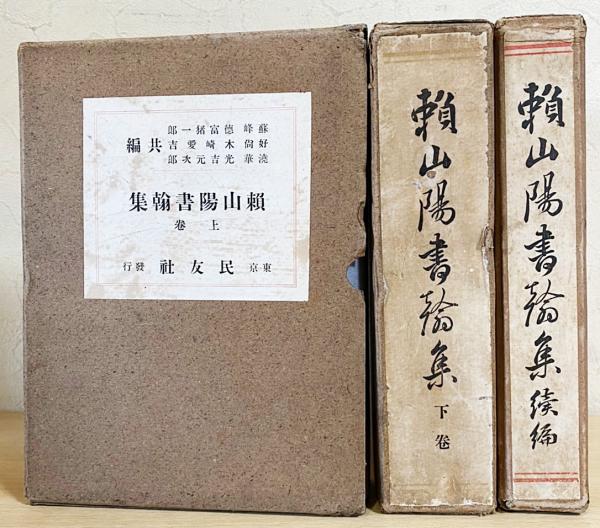 蘇峰德富猪一郎
好尙木崎愛吉
澆華光吉元次郎
共編
賴山陽書翰集
上卷
東京 民友社 發行
賴山陽書翰集
下卷
賴山陽書翰集
續編